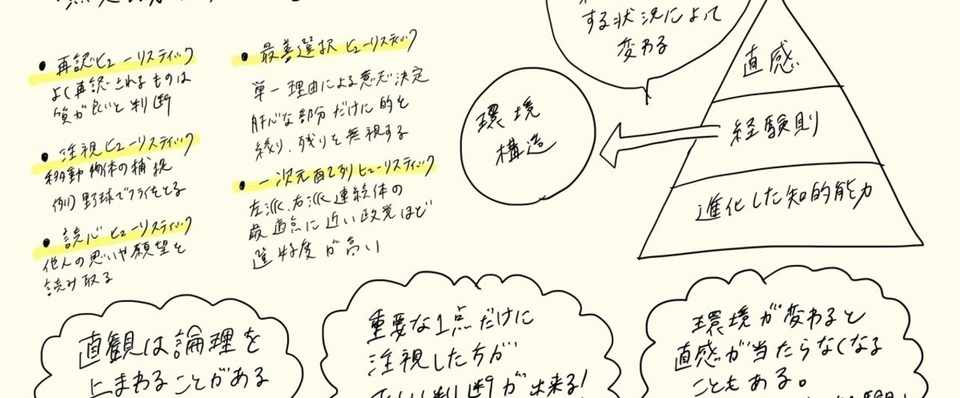 ・再認ヒューリスティック
よく再認されるものは
質が良いと判断
・注視ヒューリスティック
移動物体の捕捉
例）野球でフライをとる
・読心ヒューリスティック
他人の思いや願望を
読み取る
・最善選択ヒューリスティック
単一理由による意思決定
肝心な部分だけに的を
絞り、残りを無視する
・一次元配列ヒューリスティック
左派、右派連続体の
最適点に近い政党ほど
選好度が高い
する状況によって
変わる
環境
構造
直感
経験則
進化した知的能力
直観は論理を
上まわることがある
重要な1点だけに
注視した方が
正しい判断が出来る!
環境が変わると
直感が当たらなくなる
こともある。